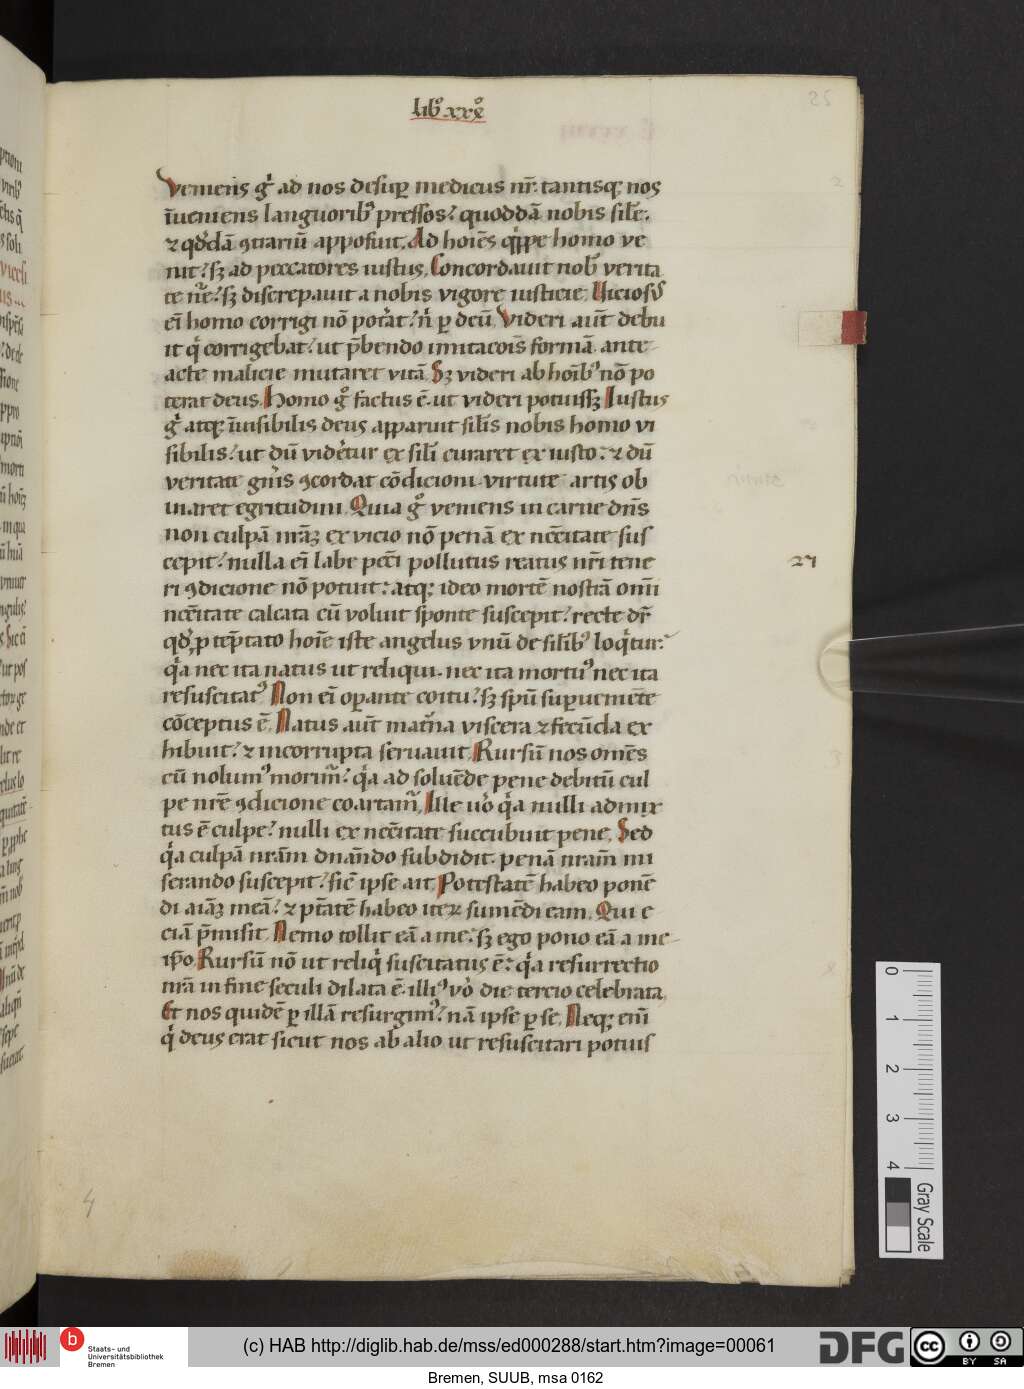 lib᷒ xxͦ
Veniens gͥ ad nos desuꝑ medicus nr̄. tantisqꝫ nos
īueniens languorib᷒ pressos? quoddā nobis sil̄e.
⁊ qđdā ꝯtrariū apposuit. Ad hoīes qͥppe homo ve
nit? sꝫ ad peccatores iustus. Concordauit nob̄ verita
te nr̄e? sꝫ discrepauit a nobis vigore iusticie. Uiciosꝰ
eī homo corrigi nō potͣat? nͥ ꝑ deū. Videri aūt debu
it qͥ corrigebat? ut p̄bendo imitacois̄ formā. ante
acte malicie mutaret vitā. Sꝫ videri ab hoīb᷒ nō po
terat deus. Homo gͦ factus ē. ut videri potuissꝫ Iustus
gͥ atqꝫ īuisibilis deus apparuit sil̄is nobis homo vi
sibilis? ut dū videͣtur ex sil̄i curaret ex iusto? ⁊ dū
veritate gn̄is ꝯcordat cōdicioni. virtute artis ob
uiaret egritudini. Quia gͦ veniens in carne dn̄s
non culpā nrāꝫ ex vicio nō penā ex ncc̄itate sus
cepit? nulla eī labe pcc̄i pollutus reatus nr̄i tene
ri ꝯdicione nō potuit? atqꝫ ideo mortē nostrā om̄i
ncc̄itate calcata cū voluit sponte suscepit? recte dr̄
qđ p tēptato hoīe iste angelus vnū de sil̄ib᷒ loqͥtur?
qͥa nec ita natus ut reliqui. nec ita mortu᷒ nec ita
resuscitat᷒ Non eī oꝑante coitu? sꝫ sp̄u suꝑueniēte
cōceptus ē. Natus aūt matͣna viscera ⁊ fecūda ex
hibuit? ⁊ incorrupta seruauit. Rursū nos om̄es
cū nolum᷒ morim̄? qͥa ad soluēde pene debitū cul
pe nr̄e ꝯdicione coartam̄. Ille uͦo qͥa nulli admix
tus ē culpe? nulli ex ncc̄itate succubuit pene. Sed
qͥa culpā nrām dnāndo subdidit. penā nrām mi
serando suscepit? sic̄ ipse ait Potestatē habeo ponē
di aīaꝫ meā? ⁊ ptātē habeo iteꝝ sumēdi eam. Qui e
ciā p̄misit. Nemo tollit eā a me? sꝫ ego pono eā a me
ip̄o. Rursū nō ut reliqͥ suscitatus ē? qͥa resurrectio
nrā in fine seculi dilata ē. illi᷒ vͦo die tercio celebrata
Et nos quidē ꝑ illā resurgim᷒? nā ipse ꝑ se. Neqꝫ eni̅
qͥ deus erat sicut nos ab alio ut resuscitari potuis
27
4
0
1
2
3
4
Gray Scale
Staats- und
Universitätsbibliothek
Bremen
(c) HAB http://diglib.hab.de/mss/ed000288/start.htm?image=00061
DFG
cc BY SA
Bremen, SUUB, msa 0162